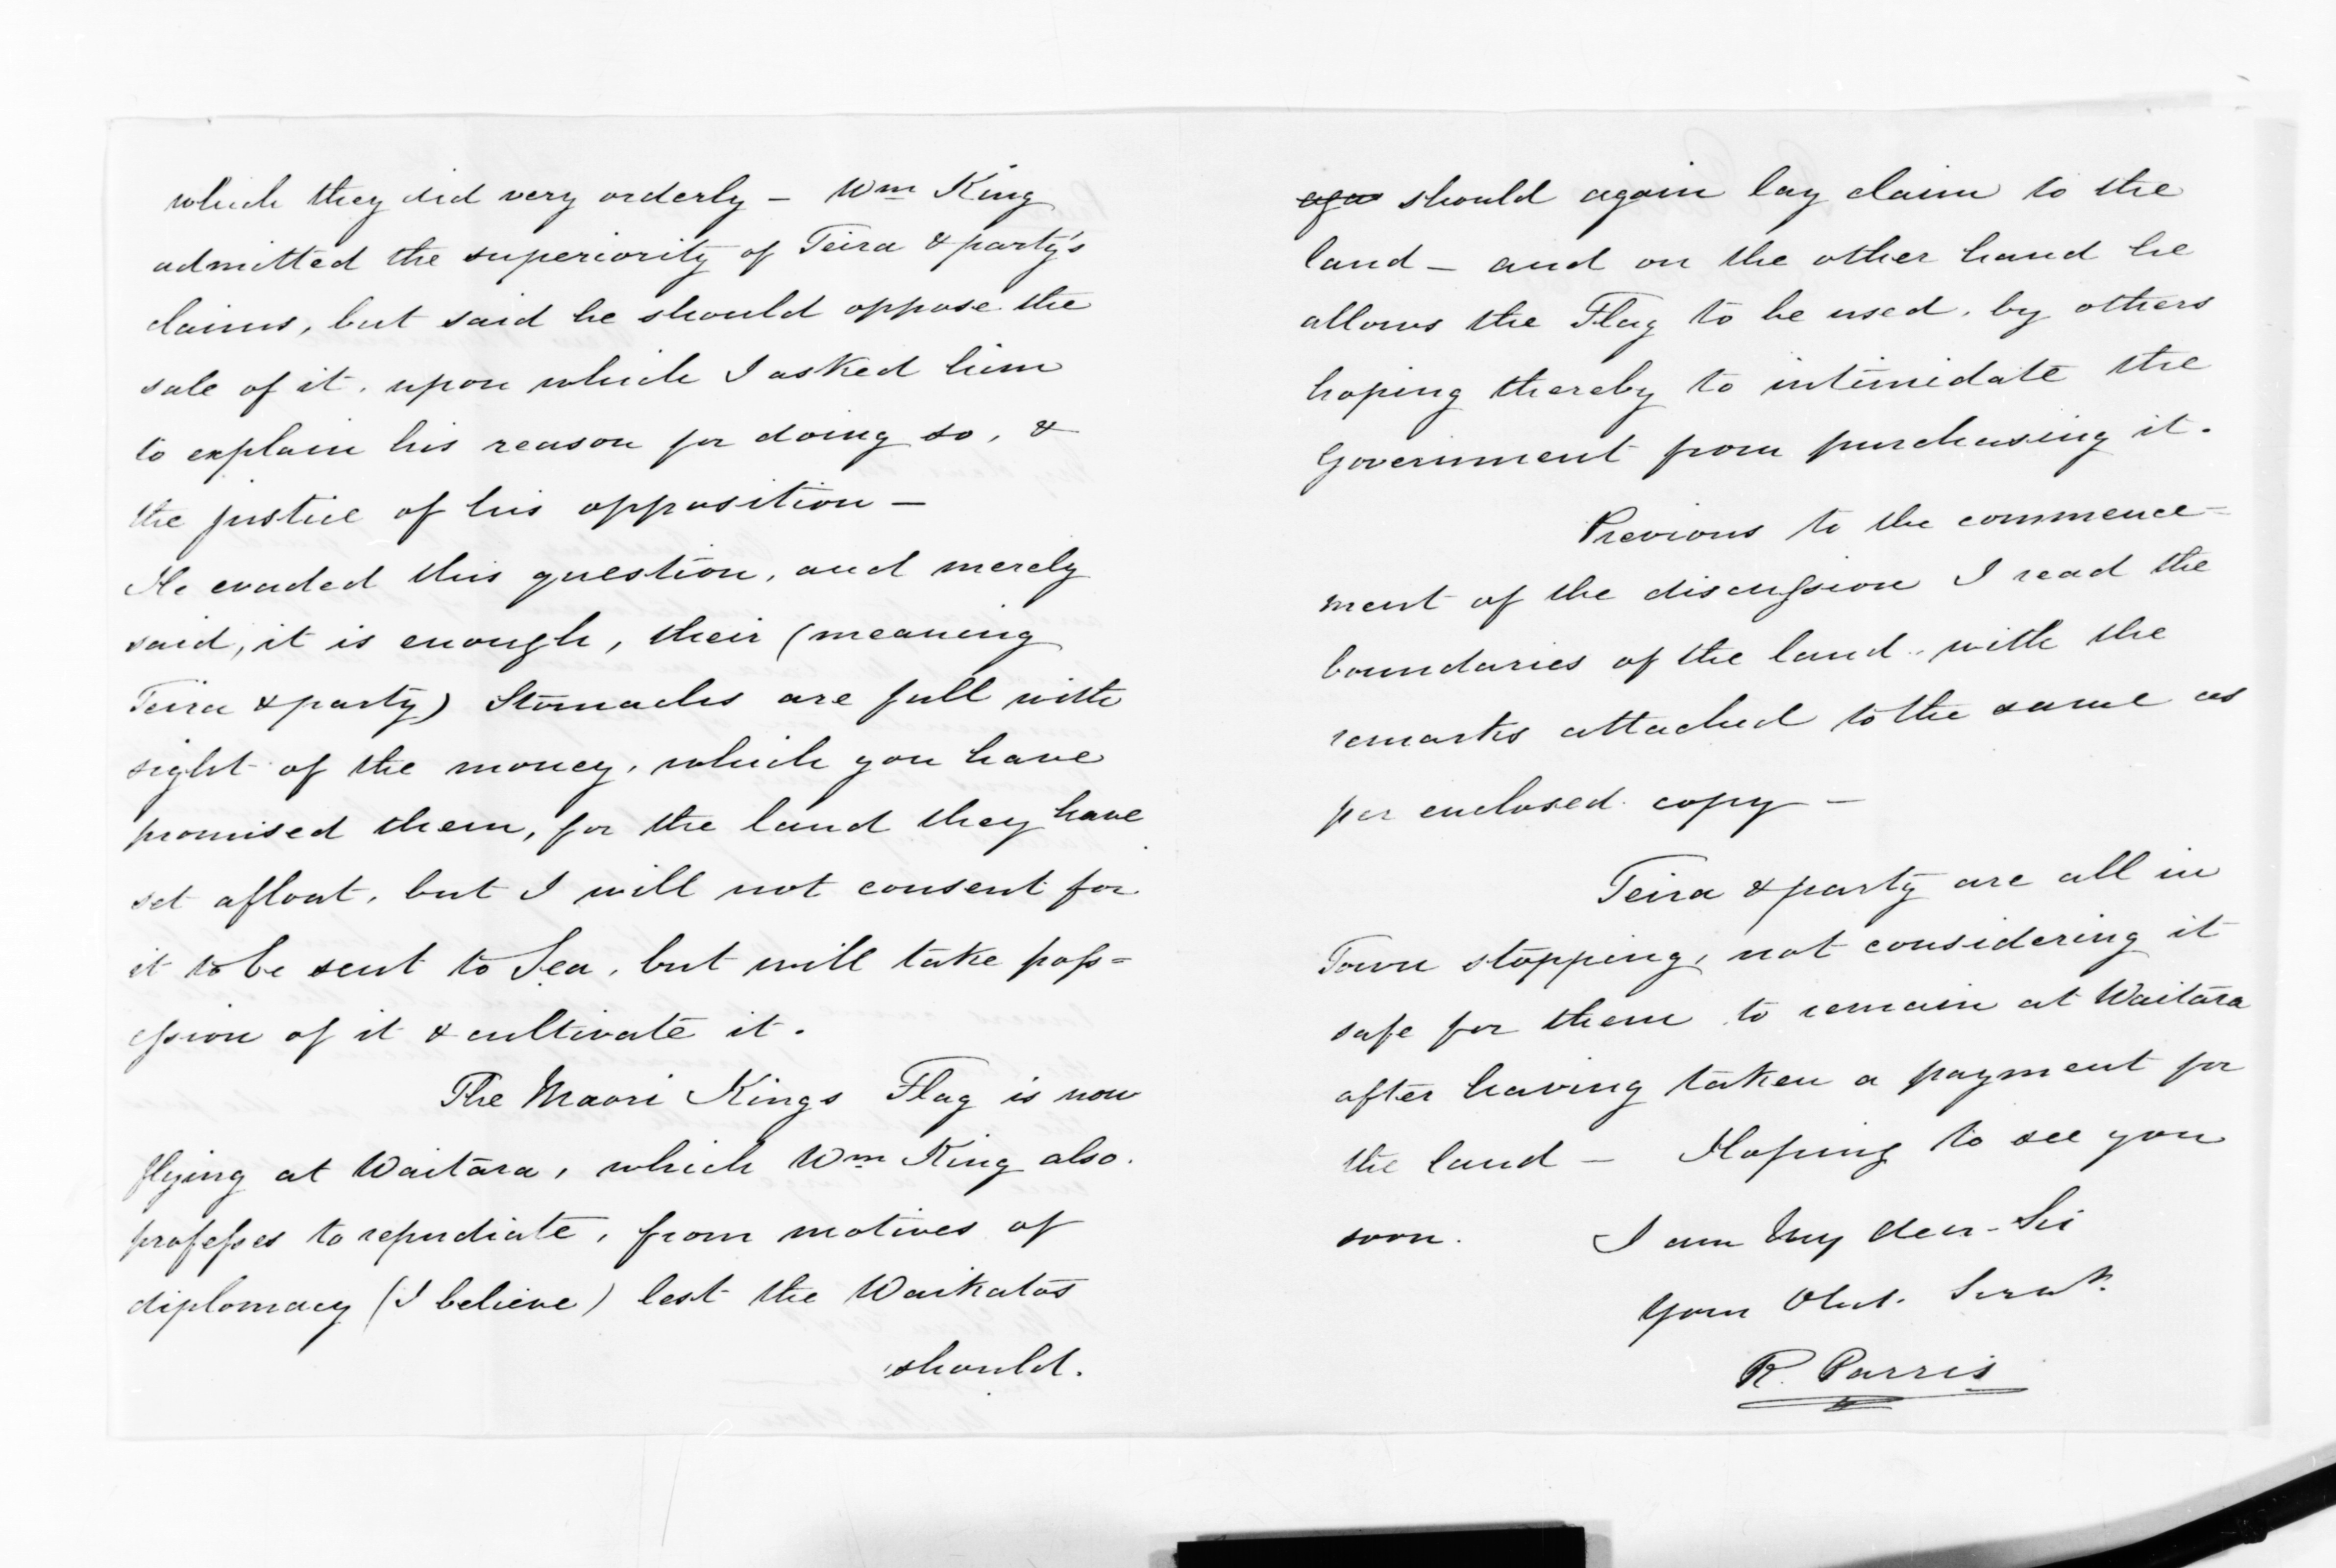 which they did very orderly - Wm King
admitted the superiority of Teira & party's
claims, but said he should oppose the
sale of it. upon which I asked him
to explain his reason for doing so, &
the justice of his opposition -
He evaded this question, and merely
said, it is enough, their (meaning
Teira & party) Stomachs are full with
sight of the money, which you have
promised them, for the land they have
set afloat, but I will not consent for
it to be sent to Sea, but will take poss=
ession of it & cultivate it.
The Maori Kings Flag is now
flying at Waitara, which Wm King also.
professes to repudiate, from motives of
diplomacy (I believe) lest the Waikatos
should.
should again lay claim to the
land - and on the other hand he
allows the Flag to be used, by others
hoping thereby to intimidate the
Government from purchasing it.
Previous to the commence-
ment of the discussion I read the
boundaries of the land, with the
remarks attached to the same as
per enclosed copy -
Teira & party are all in
Town stopping, not considering it
safe for them to remain at Waitara
after having taken a payment for
the land - Hoping to see you
soon. I am My dear Sir
Your Obdt. Servt.
R. Parris